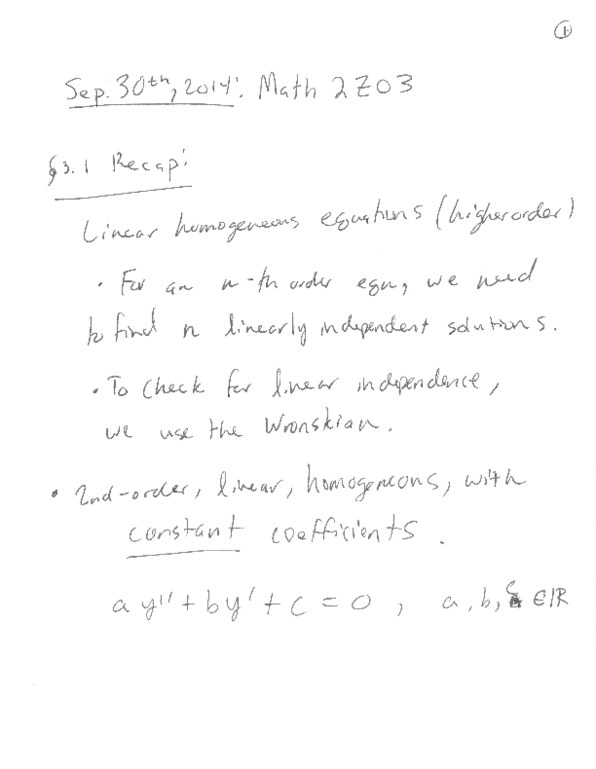 ①
Sep. 30th, 2014: Math 2Z03
§3.1 Recap:
Linear homogeneous equations (higher order)
• For an n-th order eqn, we need
to find n linearly independent solutions.
• To check for linear independence,
we use the Wronskian.
• 2nd-order, linear, homogeneous, with
constant coefficients.
ay'' + by' + c = 0 , a, b, c ∈ ℝ